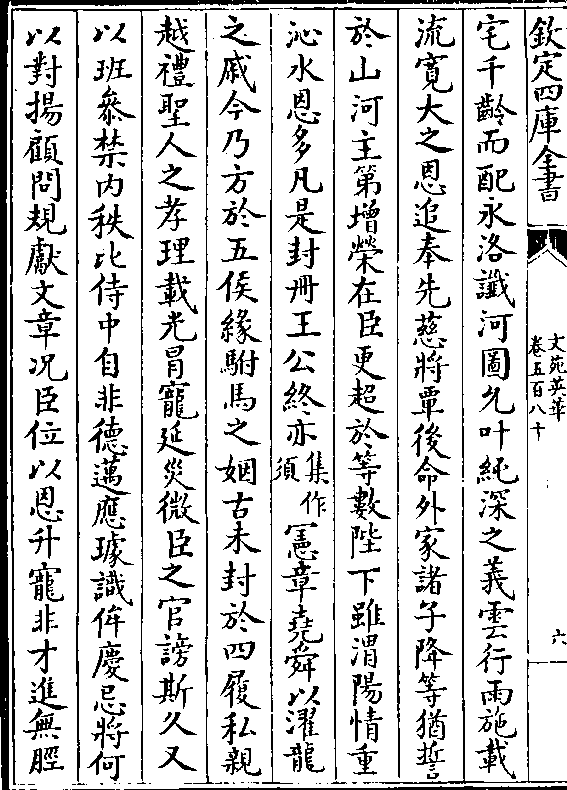 欽定四庫全書
文苑英華
卷五百八十
六
宅千齡而配永洛讖河圖允叶純深之義雲行雨施載
流寛大之恩追奉先慈將覃後命外家諸子降等猶誓
於山河主第增榮在臣更超於等數陛下雖渭陽情重
沁水恩多凡是封冊王公終亦集作須憲章堯舜以濯龍
之戚今乃方於五侯緣駙馬之姻古未封於四履私親
越禮聖人之孝理載光冒寵延災微臣之官謗斯久又
以班叅禁内秩比侍中自非德邁應璩識侔慶忌將何
以對揚顧問規獻文章况臣位以恩升寵非才進無脛